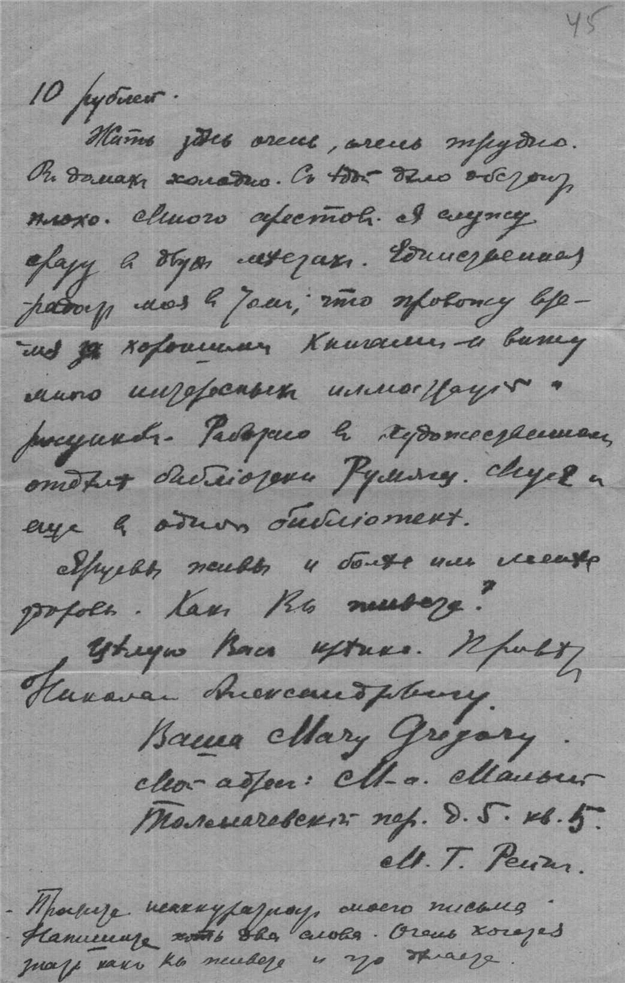 45
10 рублей.
Жить здѣсь очень, очень трудно.
Въ домахъ холодно. Съ ѣдой дѣло обстоитъ
плохо. Много арестовъ. Я служу
сразу въ двухъ мѣстахъ. Единственная
радость моя въ томъ, что провожу вре-
мя за хорошими книгами и вижу
много интересныхъ иллюстрацій и
рисунковъ. Работаю въ художественномъ
отдѣлѣ библіотеки Румянц. Музея и
еще въ одной библіотекѣ.
живы и болѣе или менѣе
здоровы. Какъ Вы живете?
Цѣлую Васъ крѣпко. Привѣтъ
Николаю Александровичу.
Ваша Mary Gregory.
Мой адресъ: М-а. Малый
Толмачевскій пер. д. 5. кв. 5.
М. Г. Рейнъ.
- Простите неаккуратность моего письма.
- Напишите хоть два слова. Очень хочется
знать какъ Вы живете и что дѣлаете.